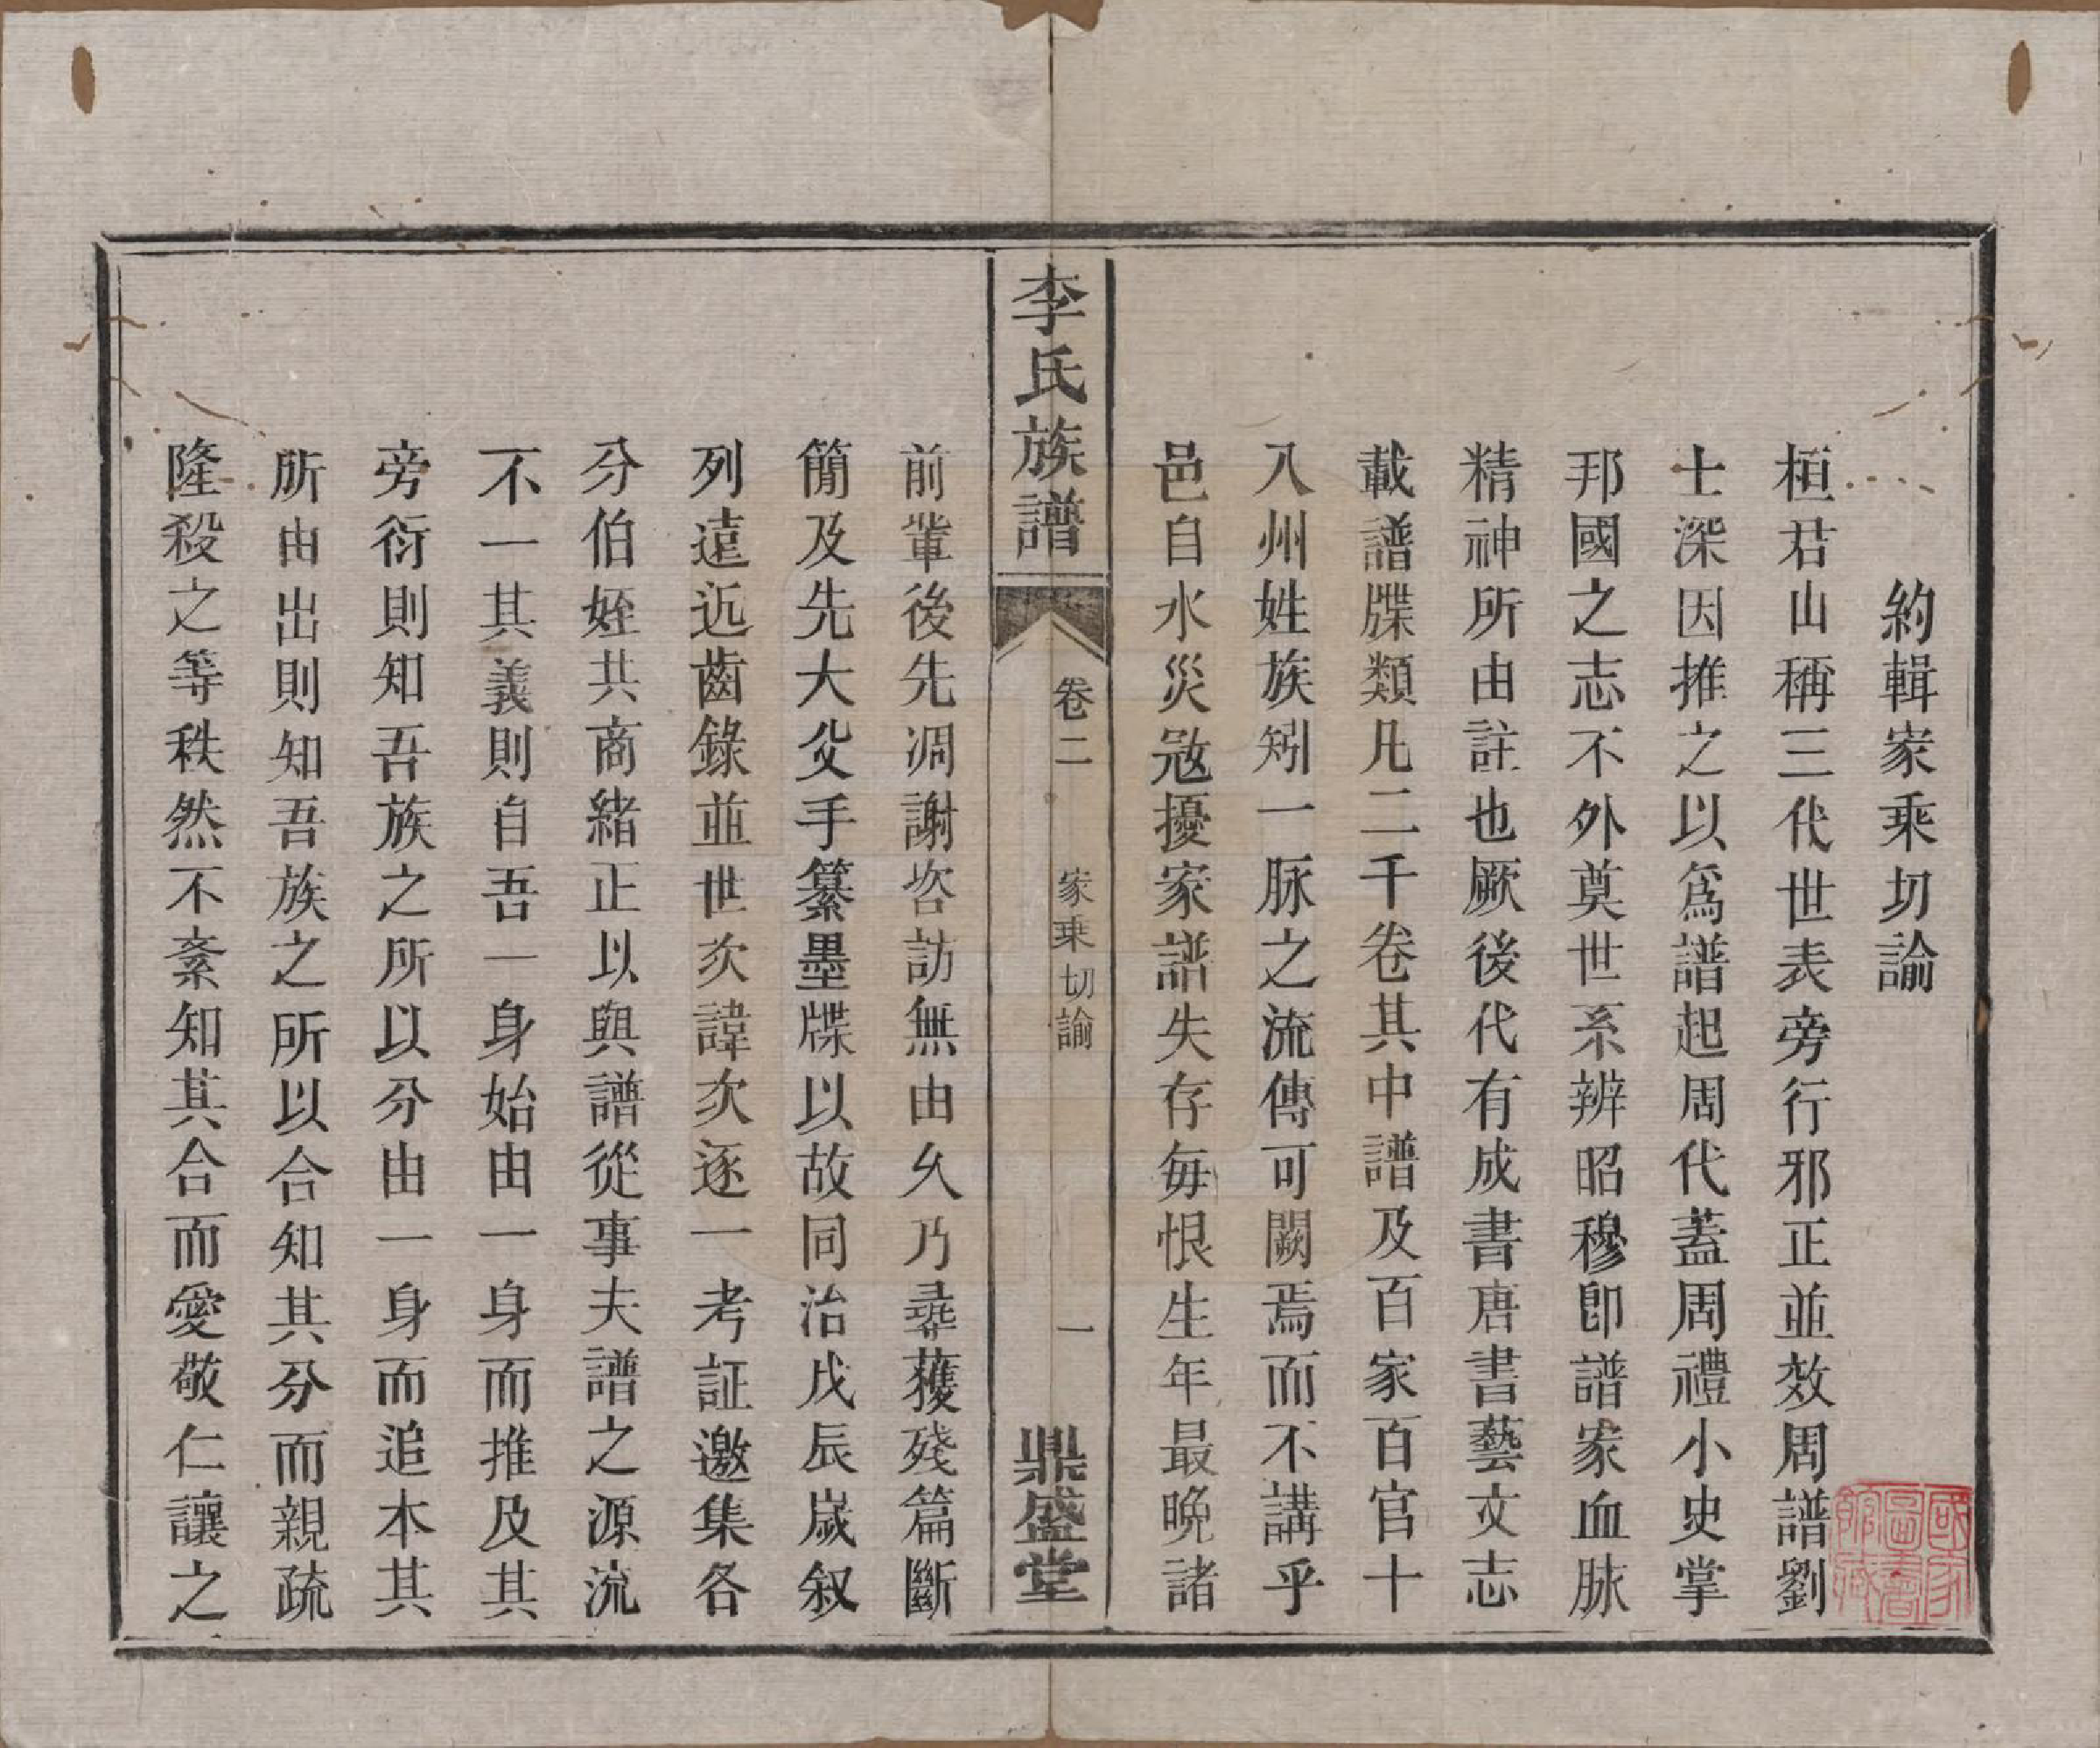 約輯家乘切論
桓君山稱三代世表旁行邪正並效周譜劉
士深因推之以爲譜起周代蓋周禮小史掌
邦國之志不外奠世系辨昭穆卽譜家血脉
精神所由註也厥後代有成書唐書藝文志
載譜牒類凡二千卷其中譜及百家百官十
八州姓族矧一脉之流傳可闕焉而不講乎
邑自水災寇擾家譜失存每恨生年最晩諸
李氏族譜
卷二
家乘切論
一
鼎盛堂
前輩後先凋謝咨訪無由久乃尋蒦殘篇斷
簡及先大父手纂墨牒以故同治戊辰嵗叙
列遠近齒錄並世次諱次逐一考証邀集各
分伯姪共商緒正以與譜從事夫譜之源流
不一其義則自吾一身始由一身而推及其
旁衍則知吾族之所以分由一身而追本其
所由出則知吾族之所以合知其分而親疏
隆殺之等秩然不紊知其合而愛敬仁讓之
國家圖書館藏